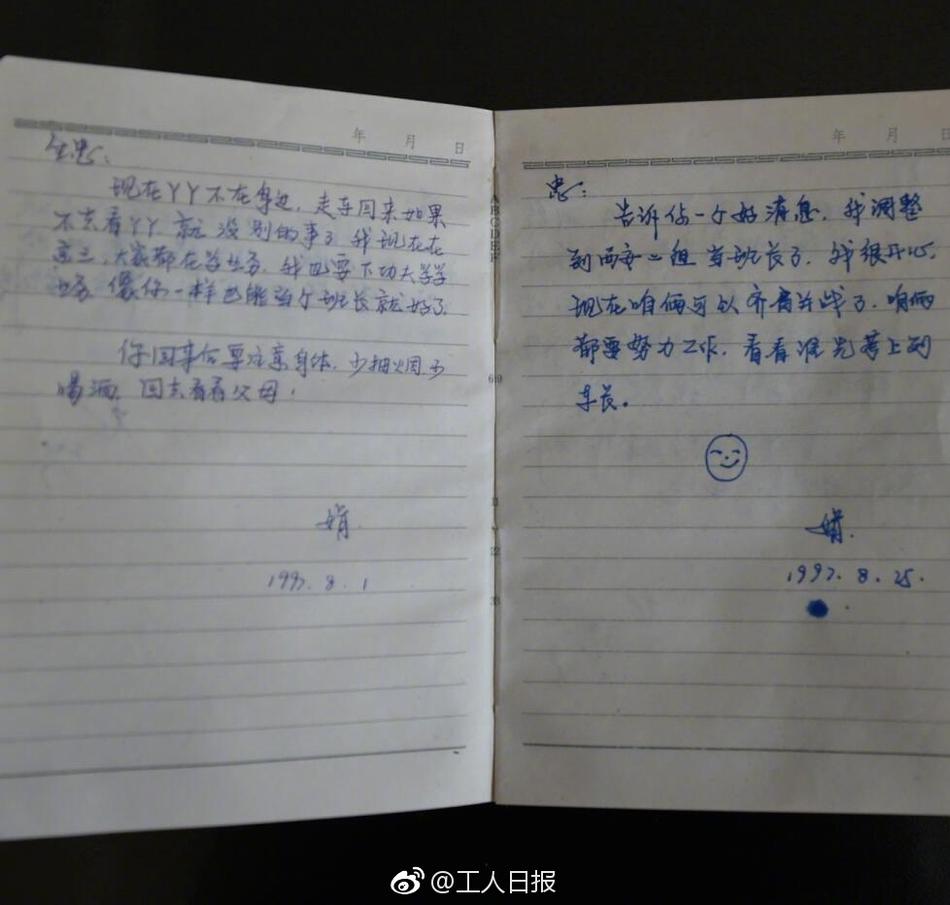 年 月 日
生忠:
现在丫丫不在身边,走车回来如果
不去看丫丫就没别的事了,我现在在
直三,大家都在学业务,我也要下功夫学学
业务,像你一样也能当个班长就好了
你回来后要注意身体,少抽烟少
喝酒,回去看看父母.
娟
1997.8.1
年 月 日
忠:
告诉你一个好消息,我调整
到西安二组当班长了,我很开心,
现在咱俩可以齐肩并战了,咱俩
都要努力工作,看看谁先考上列
车长。
娟.
1997.8.25.
@工人日报